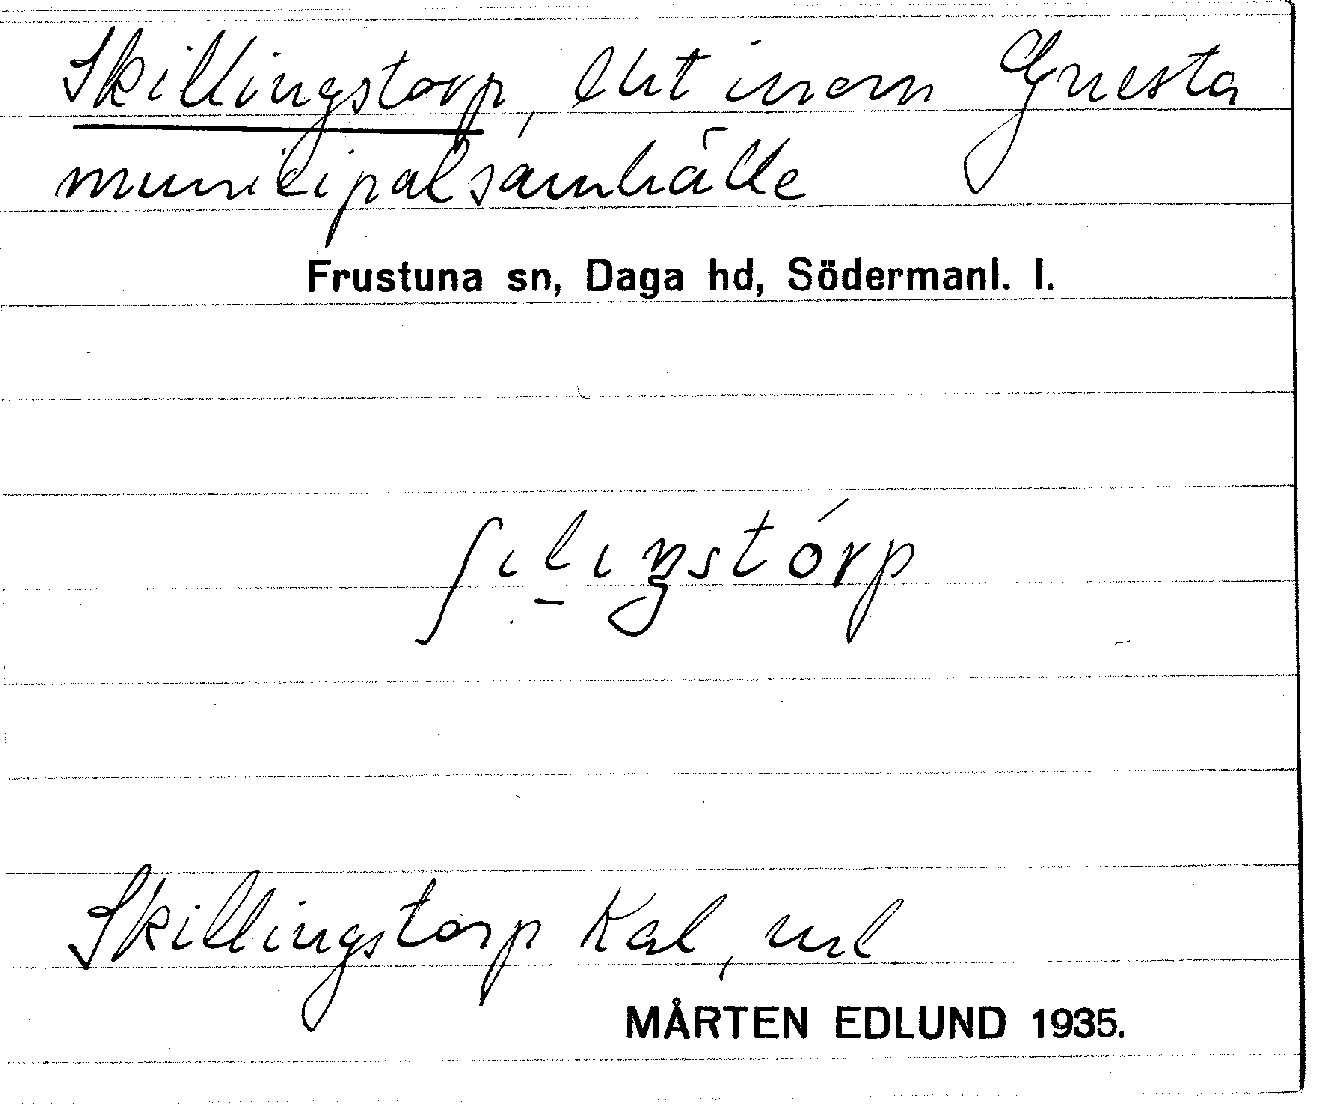 Skillingstorp, lht inom Gnesta
municipalsamhälle
Frustuna sn, Daga hd, Södermanl. l.
ʃɩlɩŋstórp
Skillingstorp Kal, url
MÅRTEN EDLUND 1935.